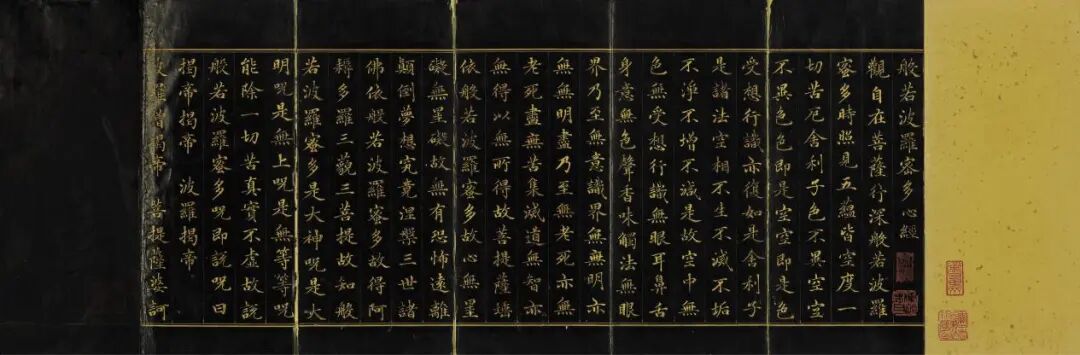 般若波羅蜜多心經
觀自在菩薩行深般若波羅
蜜多時照見五蘊皆空度一
切苦厄舍利子色不異空空
不異色色即是空空即是色
受想行識亦復如是舍利子
是諸法空相不生不滅不垢
不淨不增不減是故空中無
色無受想行識無眼耳鼻舌
身意無色聲香味觸法無眼
界乃至無意識界無無明亦
無無明盡乃至無老死亦無
老死盡無苦集滅道無智亦
無得以無所得故菩提薩埵
依般若波羅蜜多故心無罣
礙無罣礙故無有恐怖遠離
顛倒夢想究竟涅槃三世諸
佛依般若波羅蜜多故得阿
耨多羅三藐三菩提故知般
若波羅蜜多是大神呪是大
明呪是無上呪是無等等呪
能除一切苦真實不虛故說
般若波羅蜜多呪即說呪曰
揭帝揭帝 波羅揭帝
羅僧揭帝 菩提薩婆訶